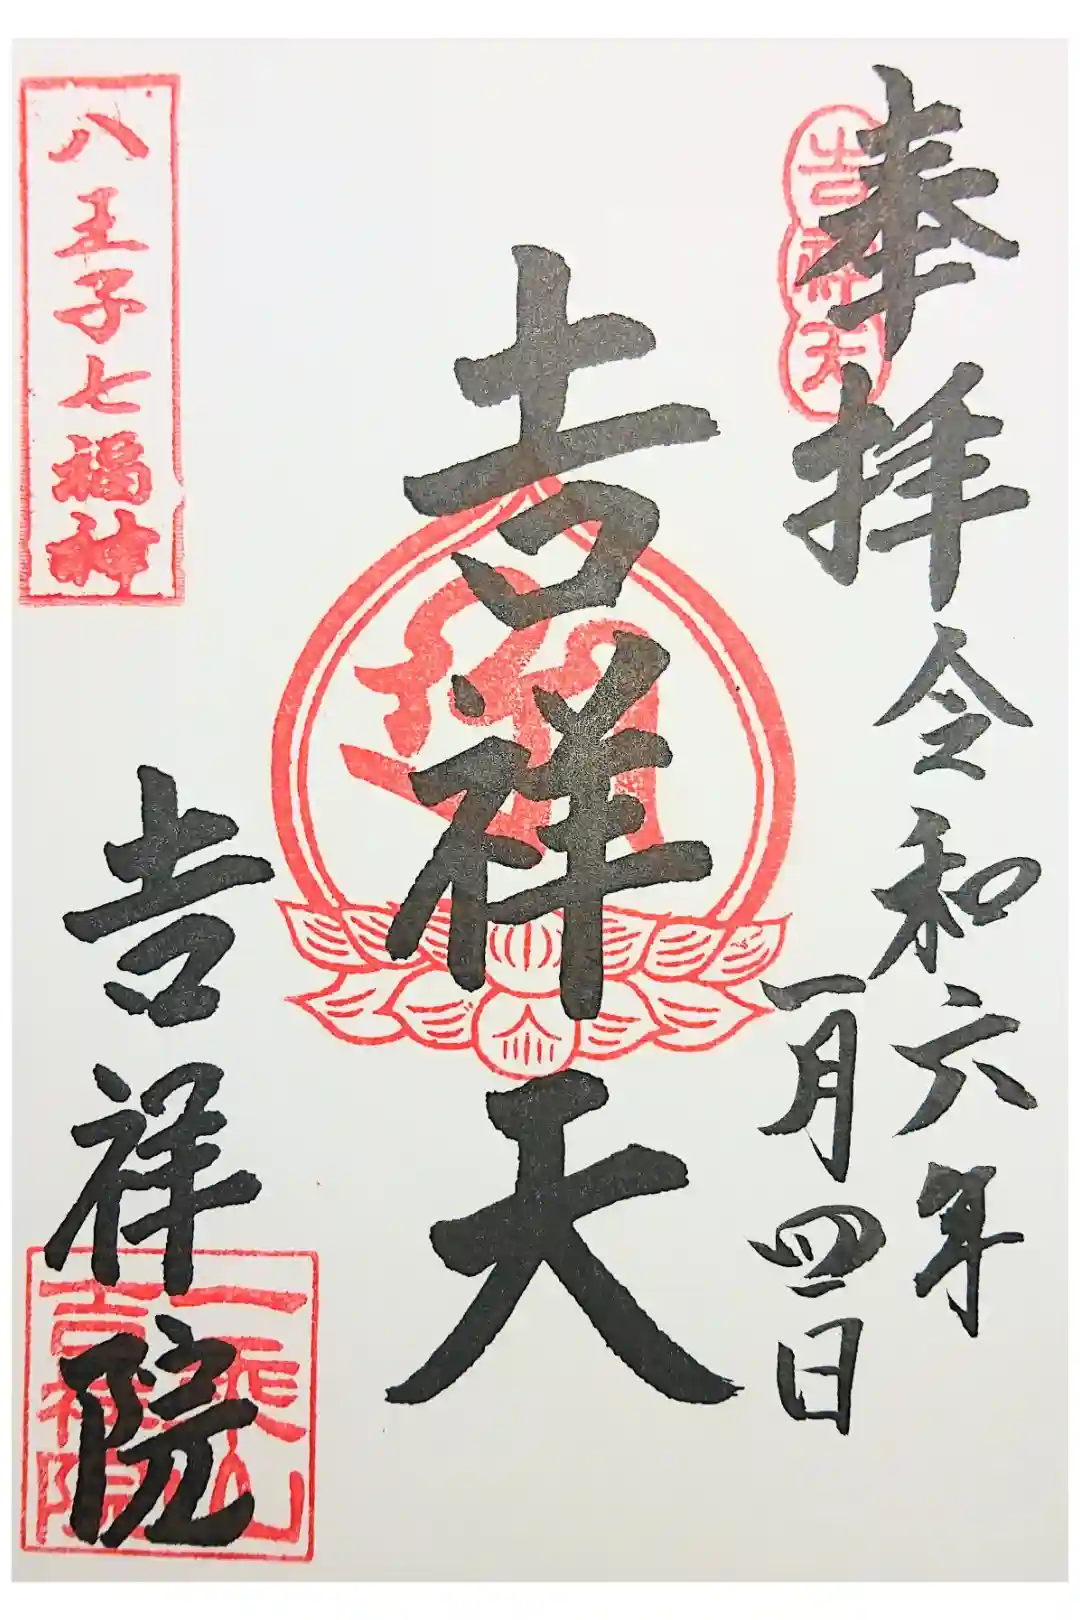 奉拝
吉祥天
令和六年
一月四日
吉祥天
八王子七福神
吉祥院
一乗山
吉祥院